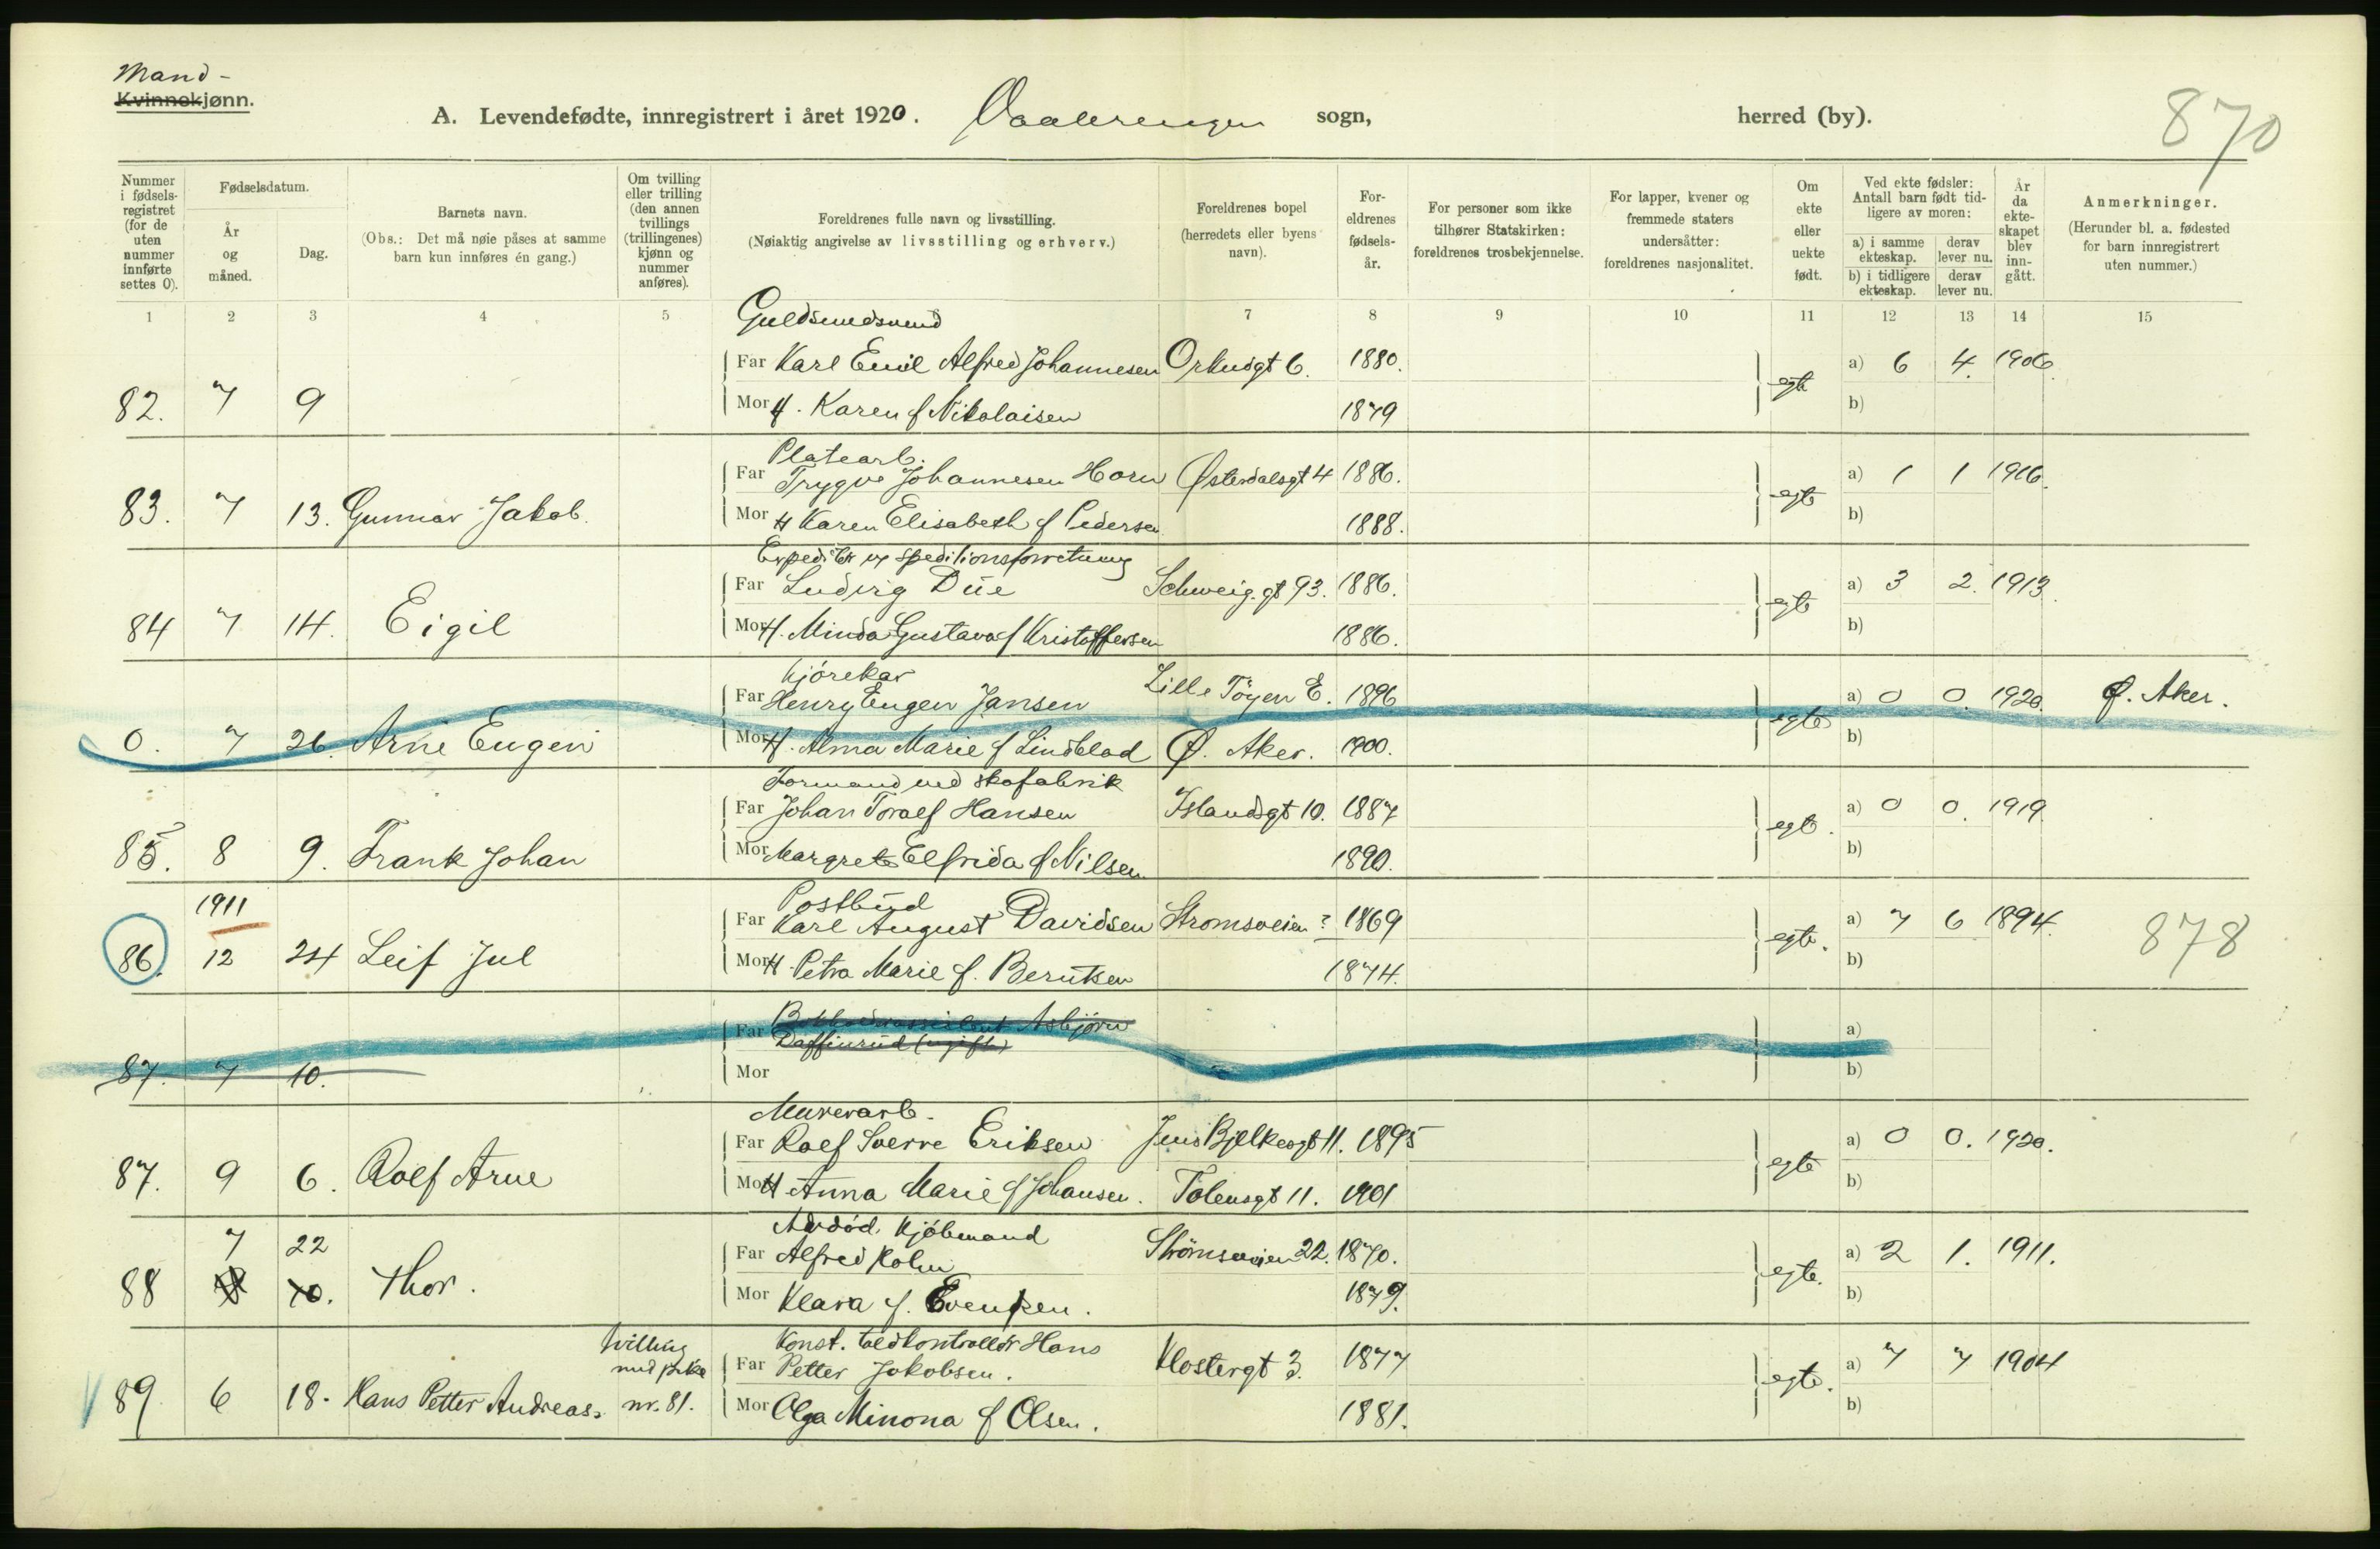 Mand-
Kvinnekjønn.
A. Levendefødte, innregistrert i året 1920. Vaalerengen sogn, herred (by).
870
Nummer i fødsels-registret (for de uten nummer innførte settes 0).
Fødselsdatum.
År og måned.
Dag.
Barnets navn.
(Obs.: Det må nøie påses at samme barn kun innføres én gang.)
Om tvilling eller trilling (den annen tvillings (trillingenes) kjønn og nummer anføres).
Foreldrenes fulle navn og livsstilling.
(Nøiaktig angivelse av livsstilling og erhverv.)
Foreldrenes bopel (herredets eller byens navn).
For-eldrenes fødsels-år.
For personer som ikke tilhører Statskirken: foreldrenes trosbekjennelse.
For lapper, kvener og fremmede staters undersåtter: foreldrenes nasjonalitet.
Om ekte eller uekte født.
Ved ekte fødsler: Antall barn født tid-ligere av moren:
a) i samme ekteskap. derav lever nu.
b) i tidligere ekteskap. derav lever nu.
År da ekte-skapet blev inn-gått.
Anmerkninger.
(Herunder bl. a. fødested for barn innregistrert uten nummer.)
1 2 3 4 5 7 8 9 10 11 12 13 14 15
Guldsmedsvend
Far Karl Emil Alfred Johannesen Orknøigt 6. 1880. a) 6 4. 1906.
82. 7 9 egte
Mor H. Karen f Nikolaisen 1879 b)
Platearb.
Far Trygve Johannesen Horn Østerdalsgt 4 1886. a) 1 1 1916.
83. 7 13. Gunnar Jakob. egte
Mor H Karen Elisabeth f Pedersen 1888. b)
Expeditør speditionsforretning
Far Ludvig Düe Schweig.gt 93. 1886. a) 3 2. 1913.
84 7 14. Eigil egte
Mor H. Minda Gustava f Kristoffersen 1886. b)
Kjørekar
Far Henry Eugen Jansen Lille Töyen E. 1896 a) 0 0. 1920. Ø. Aker.
0. 7 26. Arne Eugen egte
Mor H. Alma Marie f Lindblad Ø. Aker. 1900. b)
Formand ved skofabrik
Far Johan Toralf Hansen Islandsgt 10. 1887 a) 0 0. 1919
85. 8 9. Frank Johan egte.
Mor Margrete Elfrida f Nilsen 1890. b)
1911
Postbud
Far Karl August Davidsen Strømsveien ? 1869 a) 7 6 1894. 878
86. 12 24 Leif Jul egte.
Mor H Petra Marie f. Berntsen 1874. b)
Far Asbjørn a)
87. 7 10.
Mor b)
Murerarb.
Far Rolf Sverre Eriksen Jens Bjelkesgt 11. 1895 a) 0 0. 1920.
87. 9 6. Rolf Arne egte
Mor H Anna Marie f Johansen. Tøiensgt 11. 1901 b)
Avdød. Kjøbmand
7 22
Far Alfred Holm Strömsveien 22. 1870. a) 2 1. 1911.
88 10. Thor. egte.
Mor Klara f. Evensen. 1879. b)
tvilling med pike nr. 81.
Konst. toldkontrollør Hans
Far Petter Jakobsen. Klostergt 3. 1877 a) 7 7 1904
89 6 18. Hans Petter Andreas. egte.
Mor Olga Minona f Olsen. 1881. b)